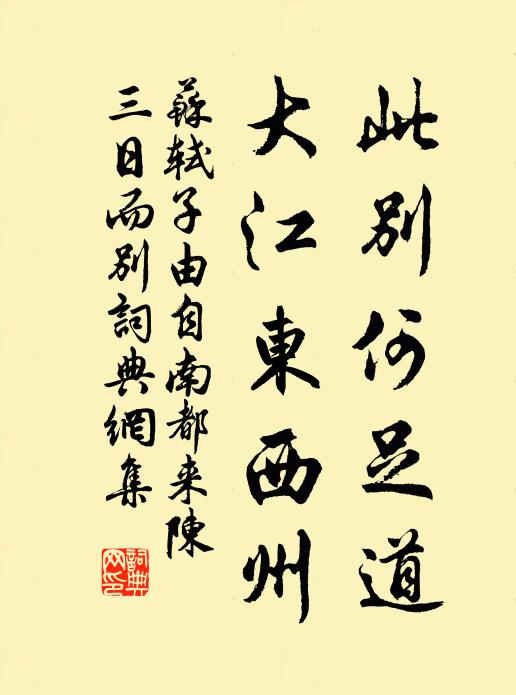 此别何足道
大江東西州
蘇軾子由自南都来陳
三日而别詞典網集
詞典網印